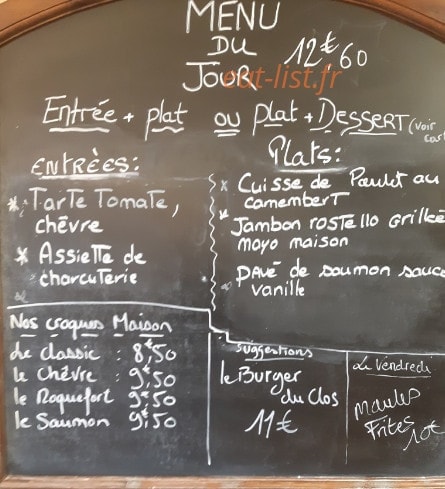 MENU
DU
JOUR
12€,60
eat-list.fr
Entrée + plat ou plat + DESSERT (voir
ENTRÈES:
* Tarte Tomate,
chêvre
* Assiette de
charcuterie
Plats:
* Cuisse de Poulet au
camembert
* Jambon rostello Grillée
mayo maison
PAVÉ de saumon sauce
vanille
Nos croques Maison
Le classic : 8€,50
le Chêvre : 9€,50
le Roquefort : 9€,50
le Saumon : 9€,50
Suggestions
le Burger
du Clos
11€
Le Vendredi
Moules
Frites 10€